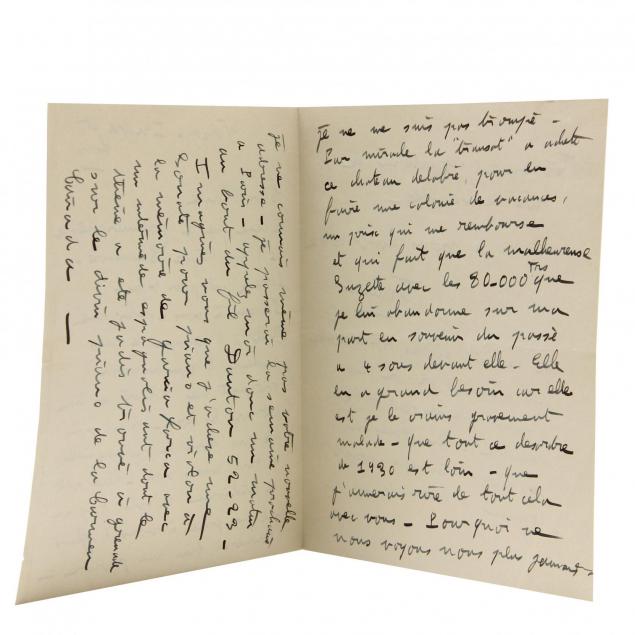 Je ne me suis pas trompé -
Par miracle la "transat" a acheté
ce chateau délabré, pour en
faire une colonie de vacances,
un prix qui me rembourse
et qui fait que la malheureuse
Suzette avec les 80-000 frs que
je lui abandonne sur ma
part en souvenir du passé
a 4 sous devant elle - Elle
en a grand besoin car elle
est je le crains
malade - Que tout ce
de 1930 est loin - que
j'aimerais rire de tout cela
avec vous - Pourquoi ne
nous voyons nous plus jamais
Je ne connais même pas votre nouvelle
adresse - Je passerai la semaine prochaine
a Paris - appelez moi donc un matin
au bout du fil Danton 52-23 -
Imaginez vous que j'achève une
Sonate pour piano et violon à
la mémoire de Garcia Lorca avec
un intermède espagnolisant dont le
thème a été jadis trouvé à grenade
sur le divin piano de la Carmen
Cañada —